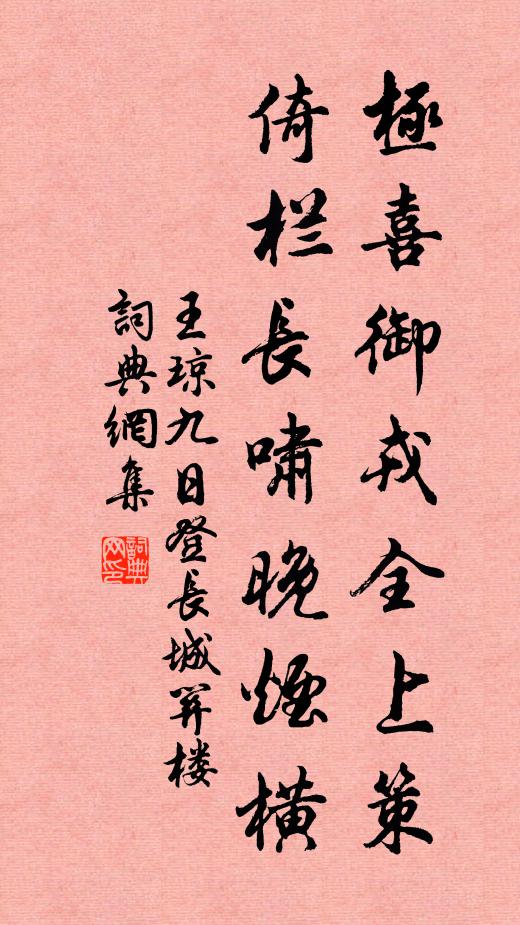 極喜御戎全上策
倚栏長嘯晚煙橫
王琼九日登長城関楼
詞典網集
詞典
网印